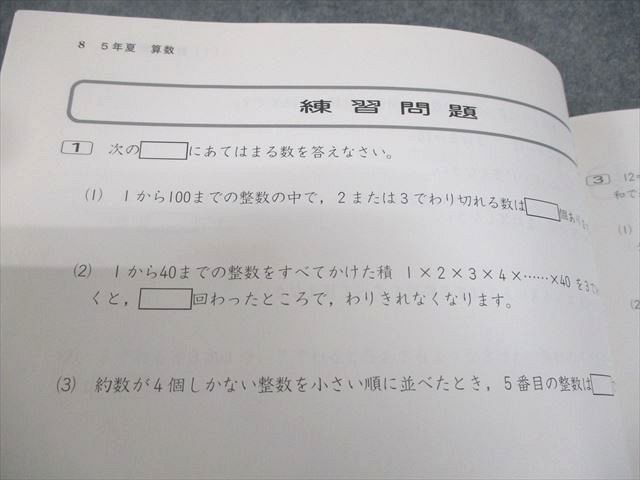 8 5年夏 算数
練習問題
1 次の□にあてはまる数を答えなさい。
(1) 1から100までの整数の中で，2または3でわり切れる数は□個あり
(2) 1から40までの整数をすべてかけた積 1×2×3×4×……×40 を3で
くと，□回わったところで，わりきれなくなります。
(3) 約数が4個しかない整数を小さい順に並べたとき，5番目の整数は□
3 12
和で
(1)
(2